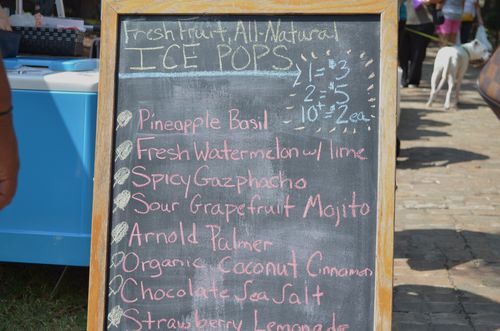 Fresh Fruit, All-Natural
ICE POPS
1 = $3
2 = $5
10+ = $2 ea
Pineapple Basil
Fresh Watermelon w/ lime
Spicy Gazphacho
Sour Grapefruit Mojito
Arnold Palmer
Organic Coconut Cinnamon
Chocolate Sea Salt
Strawberry Lemonade